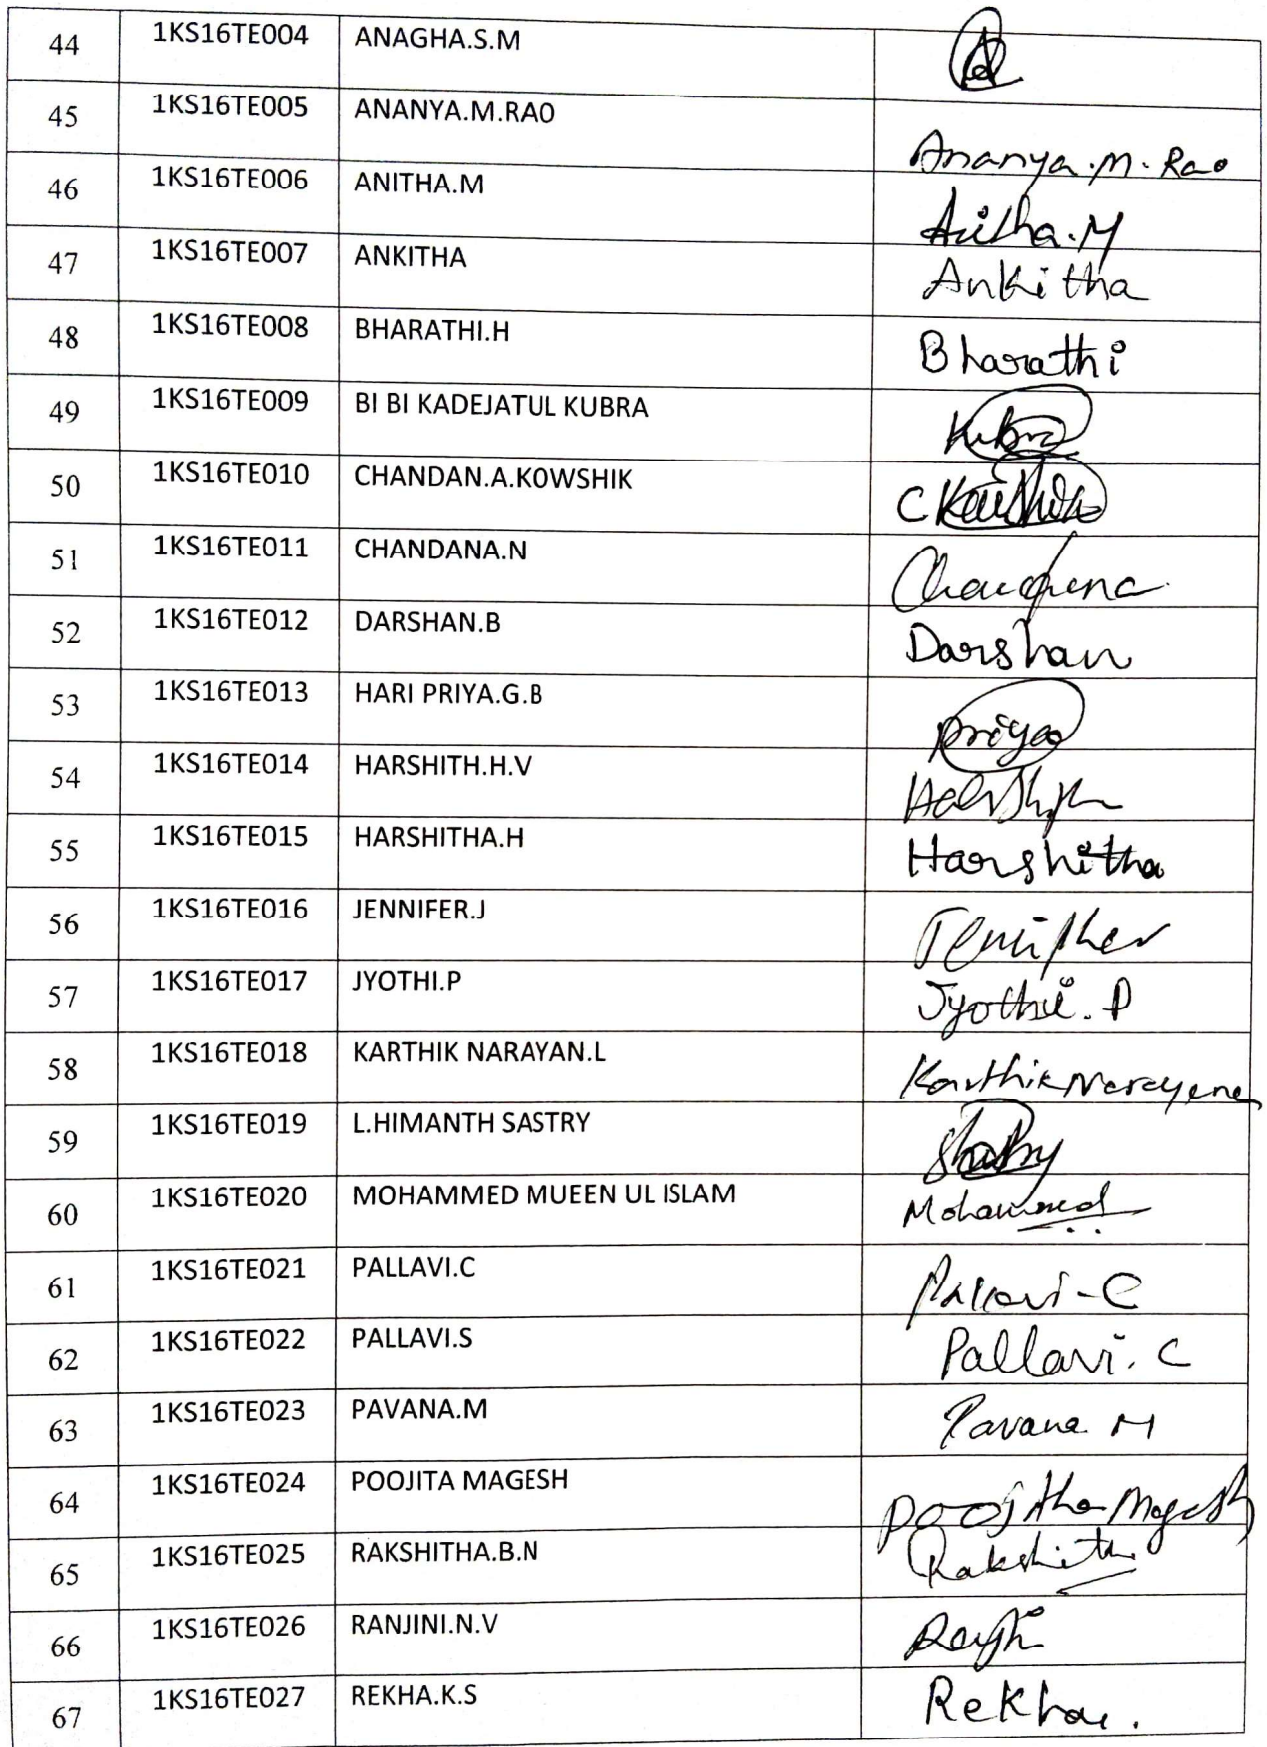 44 1KS16TE004 ANAGHA.S.M
45 1KS16TE005 ANANYA.M.RAO Ananya.M.Rao
46 1KS16TE006 ANITHA.M Anitha.M
47 1KS16TE007 ANKITHA Ankitha
48 1KS16TE008 BHARATHI.H Bharathi
49 1KS16TE009 BI BI KADEJATUL KUBRA Kubra
50 1KS16TE010 CHANDAN.A.KOWSHIK C Kaushik
51 1KS16TE011 CHANDANA.N Chandana
52 1KS16TE012 DARSHAN.B Darshan
53 1KS16TE013 HARI PRIYA.G.B Priya
54 1KS16TE014 HARSHITH.H.V
55 1KS16TE015 HARSHITHA.H Harshitha
56 1KS16TE016 JENNIFER.J Jenipher
57 1KS16TE017 JYOTHI.P Jyothi.P
58 1KS16TE018 KARTHIK NARAYAN.L Karthik Narayana
59 1KS16TE019 L.HIMANTH SASTRY
60 1KS16TE020 MOHAMMED MUEEN UL ISLAM Mohammed
61 1KS16TE021 PALLAVI.C Pallavi-C
62 1KS16TE022 PALLAVI.S Pallavi.C
63 1KS16TE023 PAVANA.M Pavana M
64 1KS16TE024 POOJITA MAGESH Poojitha Magesh
65 1KS16TE025 RAKSHITHA.B.N Rakshitha
66 1KS16TE026 RANJINI.N.V
67 1KS16TE027 REKHA.K.S Rekha.